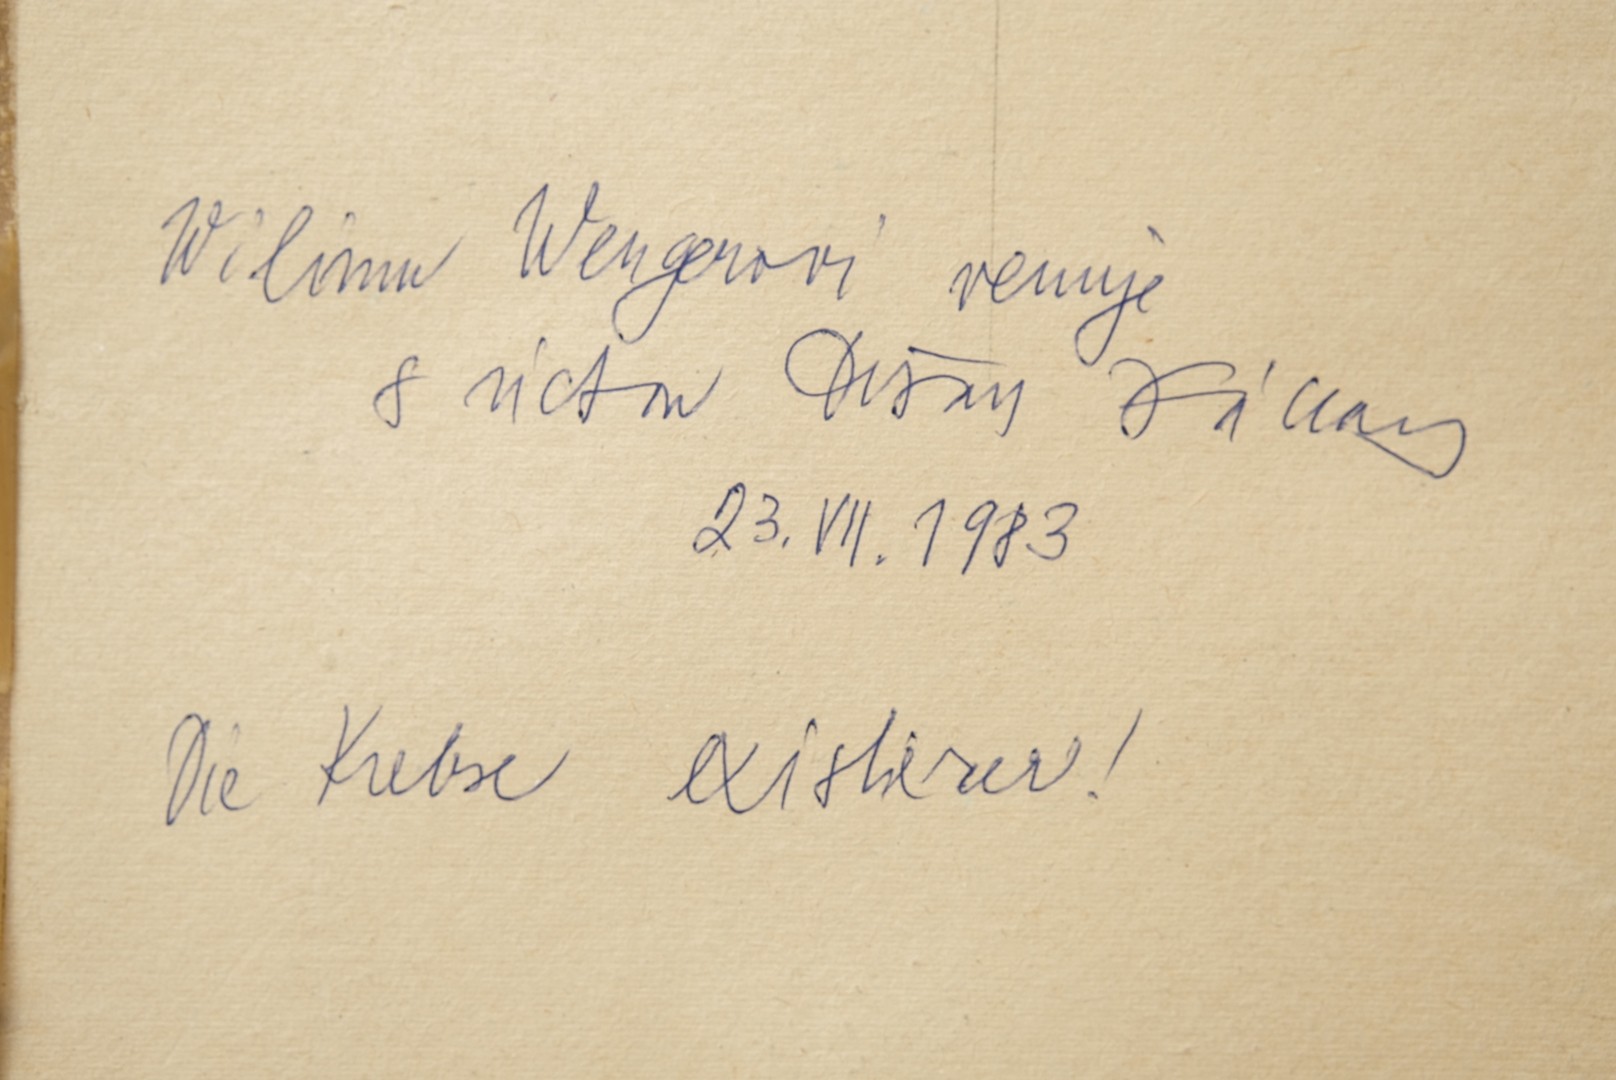 Wilimu Wengerovi venuje
s úctou Dušan
23.VII.1983
Die Krebse existieren!